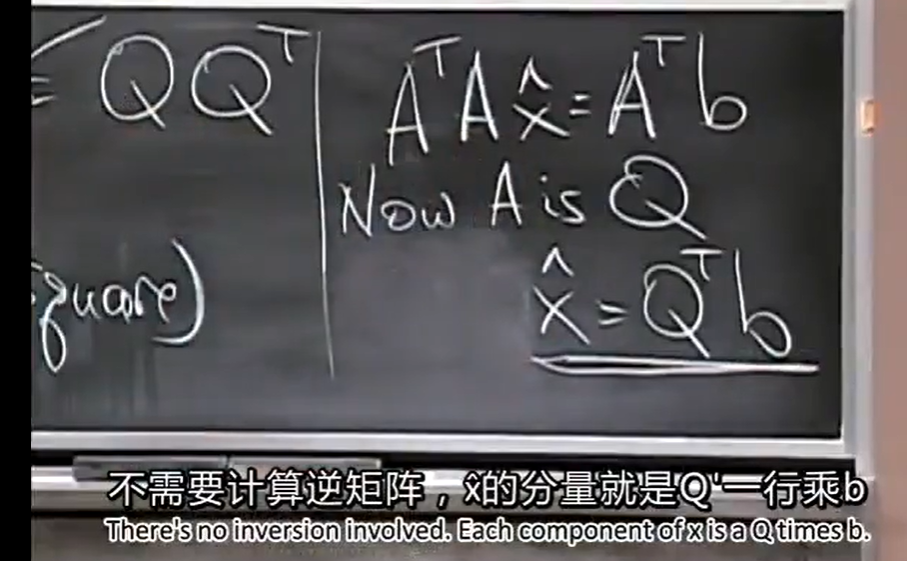 = QQᵀ
AᵀA x̂ = Aᵀb
Now A is Q
x̂ = Qᵀb
不需要计算逆矩阵，x̂的分量就是Q'一行乘b
There's no inversion involved. Each component of x is a Q times b.